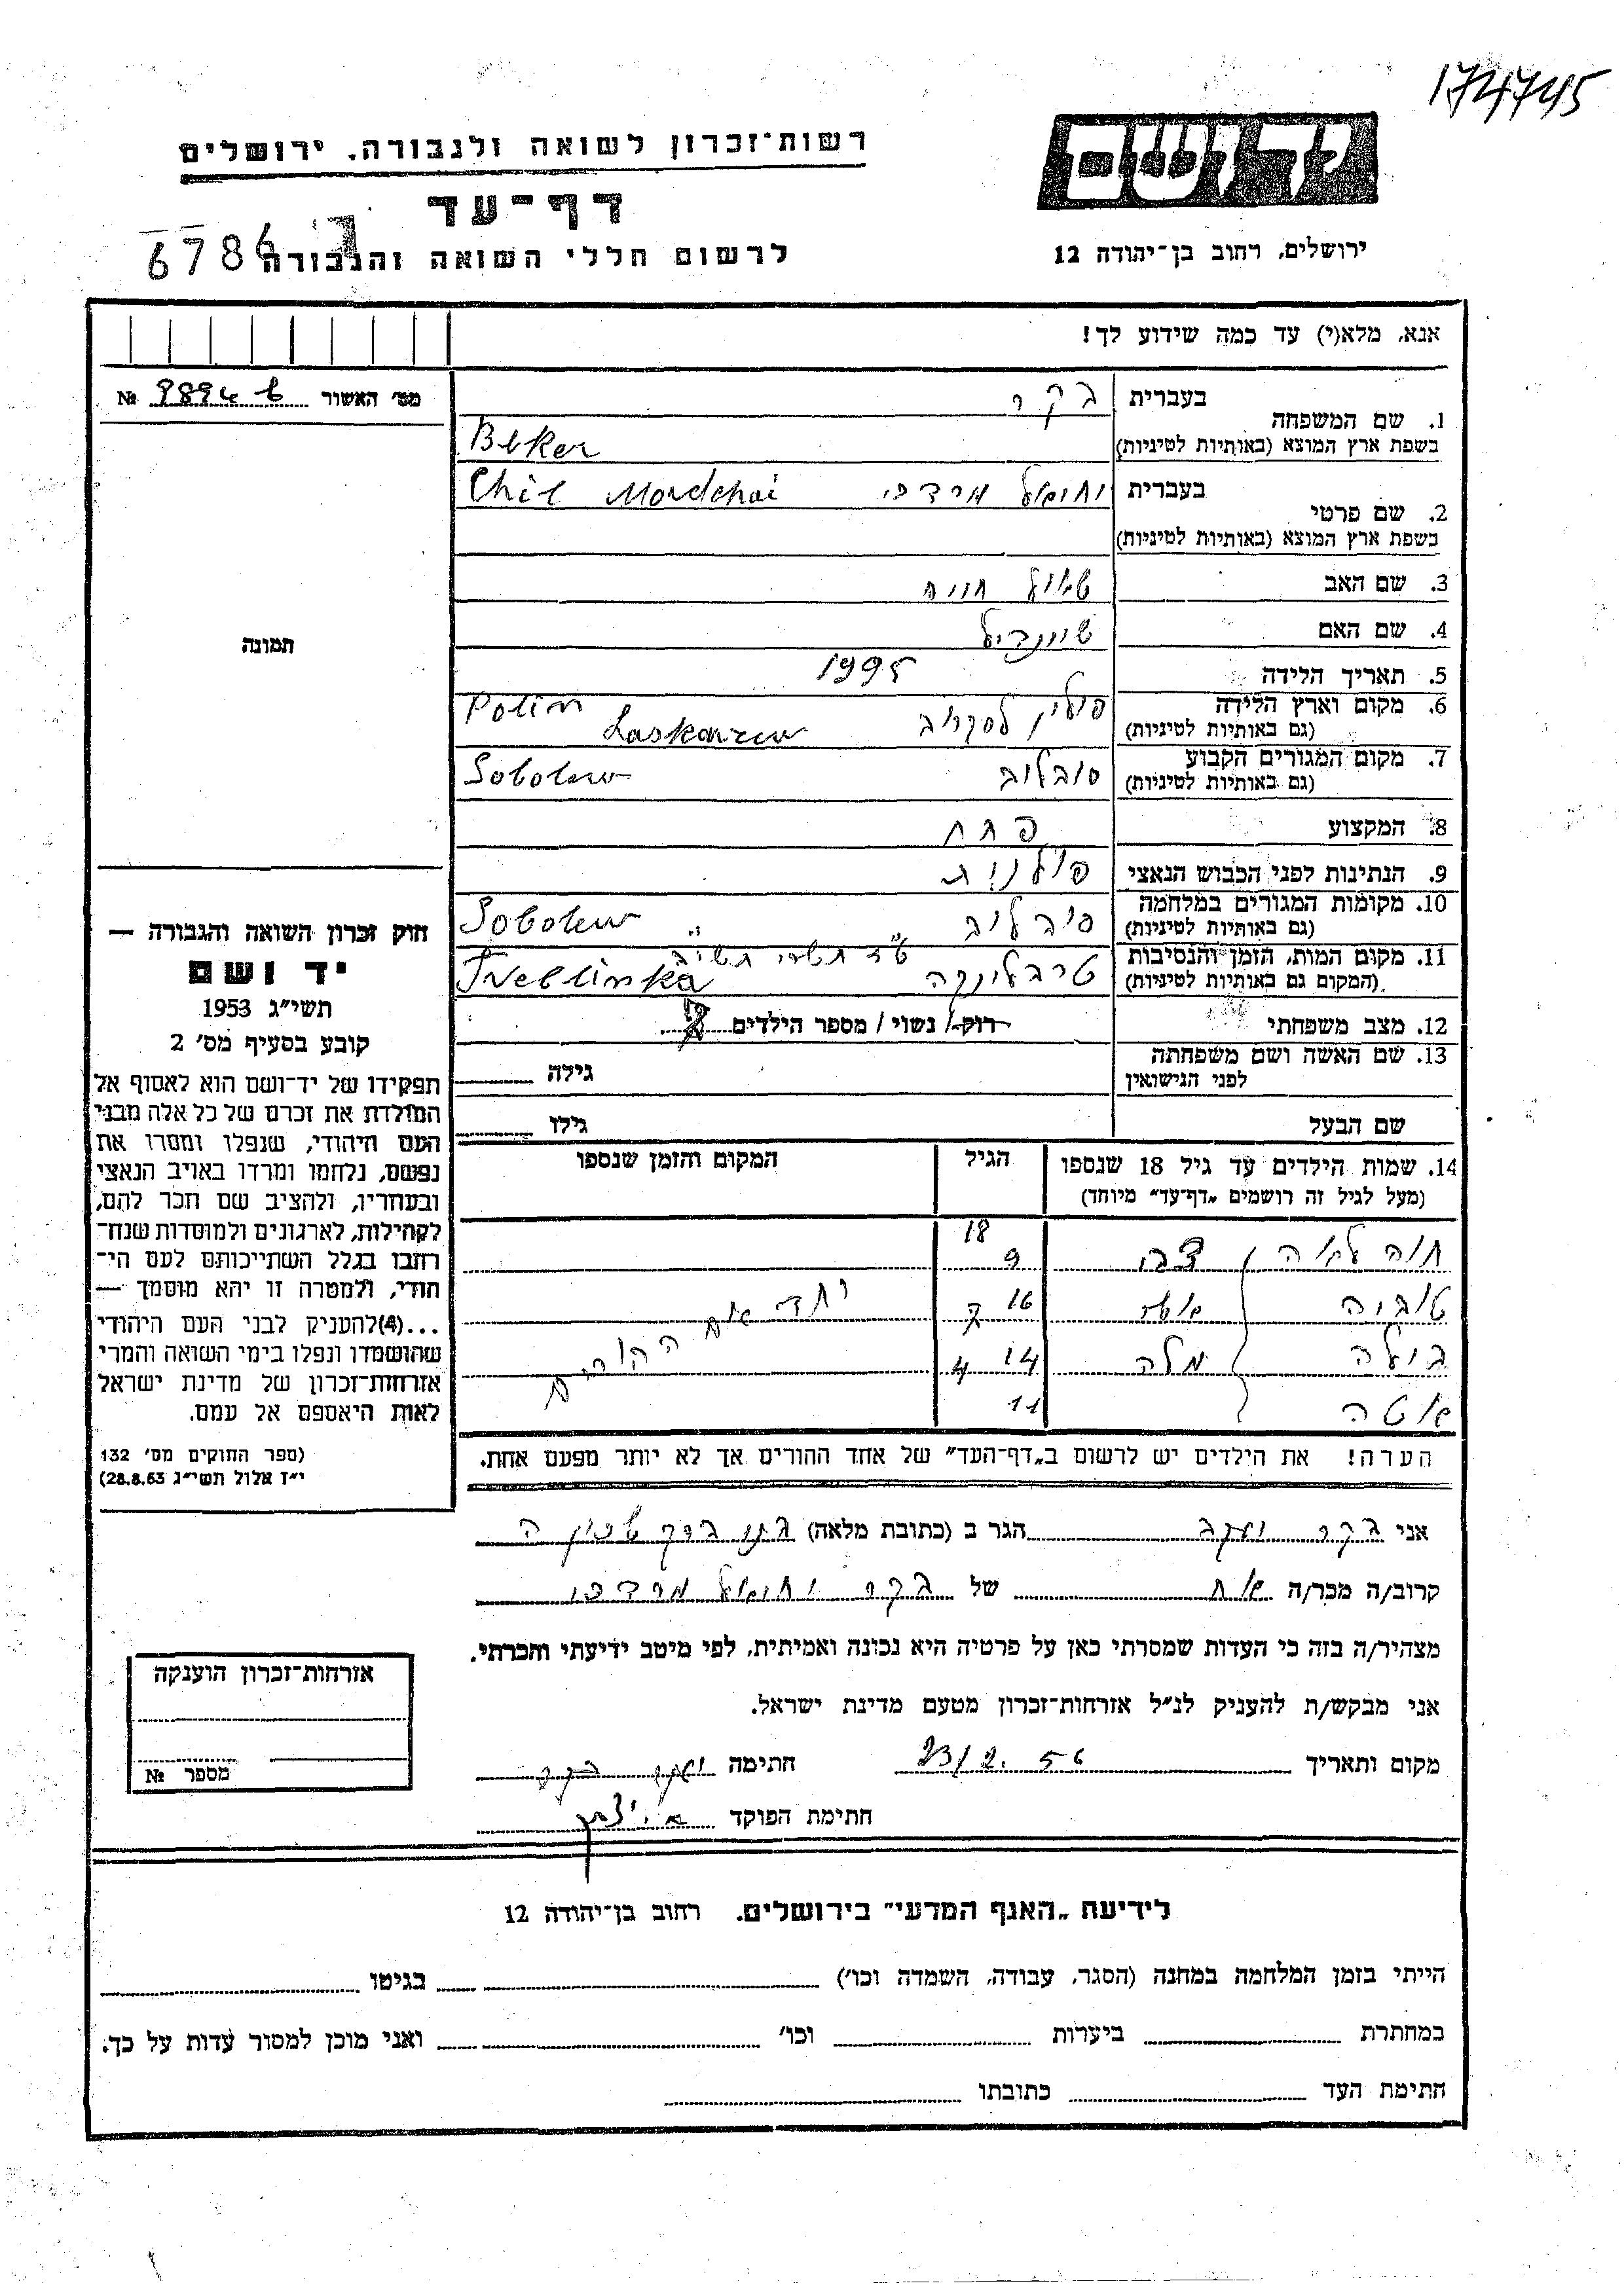 174745
יד ושם
רשות־זכרון לשואה ולגבורה. ירושלים
דף־עד
לרשום חללי השואה והגבורה
6786
ירושלים, רחוב בן־יהודה 12
אנא, מלא(י) עד כמה שידוע לך!
מס׳ האשור №
1. שם המשפחה
בעברית בקר
בשפת ארץ המוצא (באותיות לטיניות) Beker
2. שם פרטי
בעברית יחיאל מרדכי Chil Mordchai
בשפת ארץ המוצא (באותיות לטיניות)
3. שם האב שאול חונה
4. שם האם שיינדיל
5. תאריך הלידה
6. מקום וארץ הלידה פולין לסקרוב Polin Laskarzew
(גם באותיות לטיניות)
7. מקום המגורים הקבוע סובלוב Sobolew
(גם באותיות לטיניות)
8. המקצוע פחח
9. הנתינות לפני הכבוש הנאצי פולנית
10. מקומות המגורים במלחמה סובלוב Sobolew
(גם באותיות לטיניות)
11. מקום המות, הזמן והנסיבות ט״ז תשרי
(המקום גם באותיות לטיניות) טרבלינקה Treblinka
12. מצב משפחתי רוק/ נשוי / מספר הילדים
13. שם האשה ושם משפחתה
לפני הנישואין גילה
שם הבעל גילו
14. שמות הילדים עד גיל 18 שנספו הגיל המקום והזמן שנספו
(מעל לגיל זה רושמים „דף־עד״ מיוחד)
חוה לאה צבי 18 9
טוביה 16 7 יחד עם ההורים
ביילה מלה 14 4
11
הערה! את הילדים יש לרשום ב„דף־העד״ של אחד ההורים אך לא יותר מפעם אחת.
תמונה
חוק זכרון השואה והגבורה —
יד ושם
תשי״ג 1953
קובע בסעיף מס׳ 2
תפקידו של יד־ושם הוא לאסוף אל
המולדת את זכרם של כל אלה מבני
העם היהודי, שנפלו ומסרו את
נפשם, נלחמו ומרדו באויב הנאצי
ובעוזריו, ולהציב שם וזכר להם,
לקהילות, לארגונים ולמוסדות שנח־
רחבו בגלל השתייכותם לעם הי־
הודי, ולמטרה זו יהא מוסמך —
...(4)להעניק לבני העם היהודי
שהושמדו ונפלו בימי השואה והמרי
אזרחות־זכרון של מדינת ישראל
לאות היאספם אל עמם.
(ספר החוקים מס׳ 132
י״ז אלול תשי״ג 28.8.53)
אני בקר יעקב הגר ב (כתובת מלאה) בני ברק שכון ה
קרוב/ה מכר/ה אח של בקר יחיאל מרדכי
מצהיר/ה בזה כי העדות שמסרתי כאן על פרטיה היא נכונה ואמיתית, לפי מיטב ידיעתי והכרתי.
אני מבקש/ת להעניק לנ״ל אזרחות־זכרון מטעם מדינת ישראל.
מקום ותאריך 23/2. 56 חתימה יעקב בקר
חתימת הפוקד
אזרחות־זכרון הוענקה
מספר №
לידיעת „האגף המדעי״ בירושלים. רחוב בן־יהודה 12
הייתי בזמן המלחמה במחנה (הסגר, עבודה, השמדה וכו׳) בגיטו
במחתרת ביערות וכו׳ ואני מוכן למסור עדות על כך.
חתימת העד כתובתו